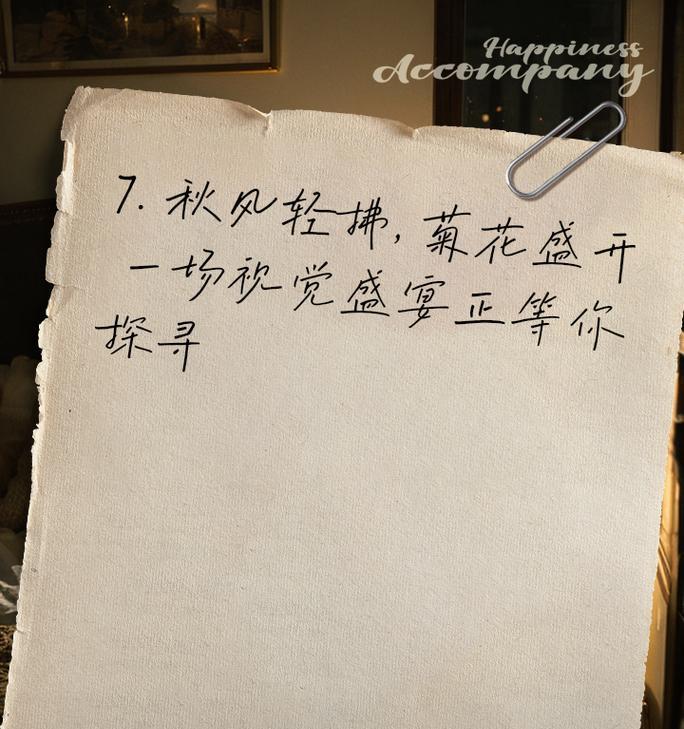 Happiness
Accompany
7. 秋风轻拂，菊花盛开
一场视觉盛宴正等你
探寻